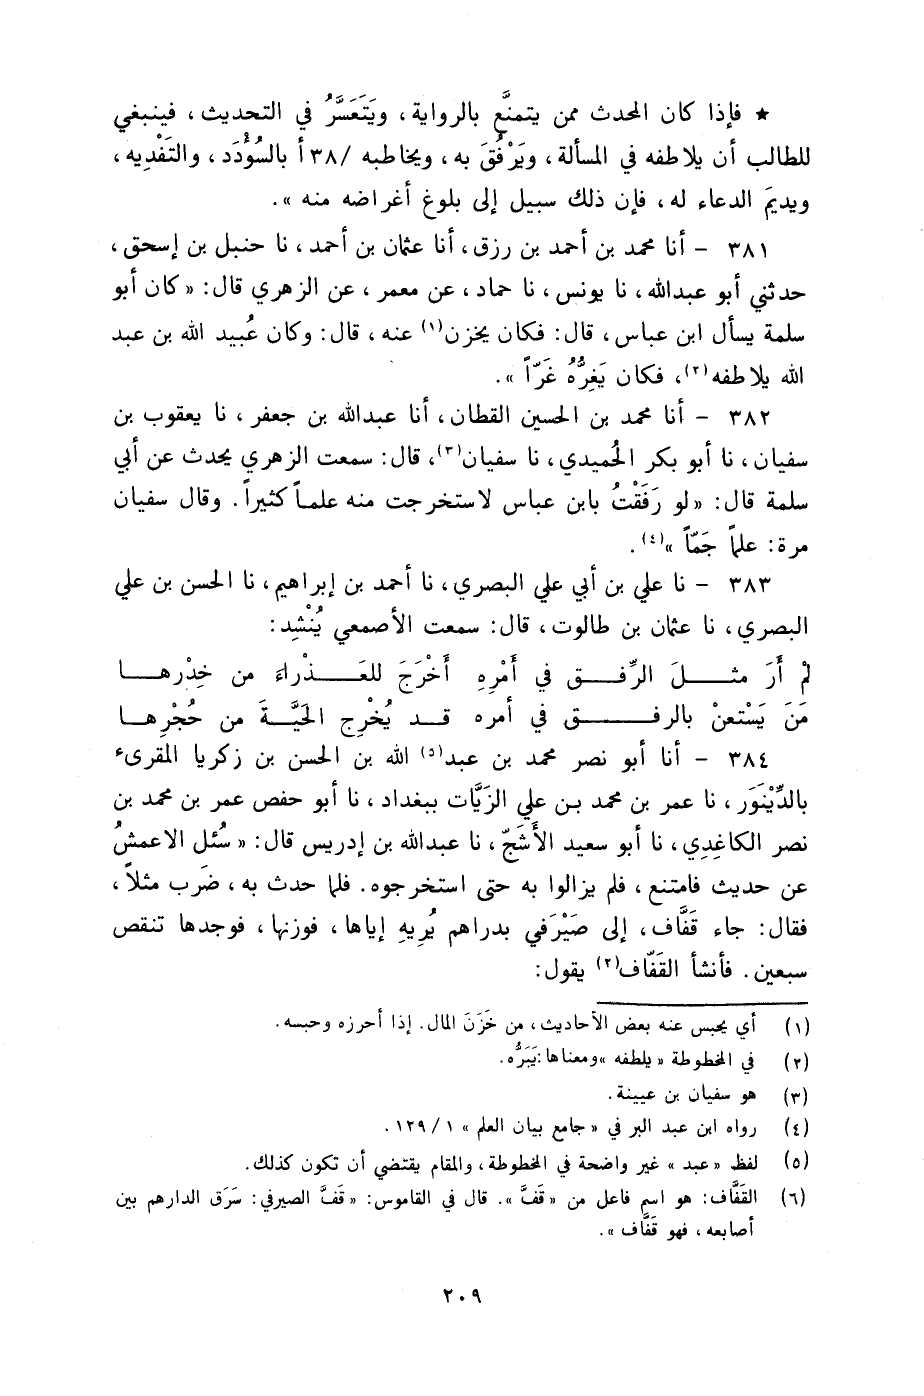 ★ فإذا كان المحدث ممن يتمنَّع بالرواية، ويَتَعَسَّرُ في التحديث، فينبغي
للطالب أن يلاطفه في المسألة، ويَرْفُقَ به، ويخاطبه /٣٨أ بالسُؤْدَد، والتَفْدِيه،
ويديمَ الدعاء له، فإن ذلك سبيل إلى بلوغ أغراضه منه ».
٣٨١ - أنا محمد بن أحمد بن رزق، أنا عثمان بن أحمد، نا حنبل بن إسحق،
حدثني أبو عبدالله، نا يونس، نا حماد، عن معمر، عن الزهري قال: « كان أبو
سلمة يسأل ابن عباس، قال: فكان يخزن(١) عنه، قال: وكان عُبيد الله بن عبد
الله يلاطفه(٢)، فكان يَغِرُّهُ غَرّاً ».
٣٨٢ - أنا محمد بن الحسين القطان، أنا عبدالله بن جعفر، نا يعقوب بن
سفيان، نا أبو بكر الحُميدي، نا سفيان(٣)، قال: سمعت الزهري يحدث عن أبي
سلمة قال: «لو رَفَقْتُ بابن عباس لاستخرجت منه علماً كثيراً. وقال سفيان
مرة: علماً جَمّاً »(٤).
٣٨٣ - نا علي بن أبي علي البصري، نا أحمد بن إبراهيم، نا الحسن بن علي
البصري، نا عثمان بن طالوت، قال: سمعت الأصمعي يُنْشِد:
لم أرَ مثــلَ الرِّفــق في أمْرِهِ أخْرَجَ للعَــذْراءَ من خِدْرهــا
مَنَ يَسْتعنْ بالرفــق في أمره قــد يُخْرِج الحَيَّــةَ من حُجْرِهــا
٣٨٤ - أنا أبو نصر محمد بن عبد(٥) الله بن الحسن بن زكريا المقرىء
بالدِّيْنَوَر، نا عمر بن محمد بن علي الزيَّات ببغداد، نا أبو حفص عمر بن محمد بن
نصر الكاغِدِي، نا أبو سعيد الأشَجّ، نا عبدالله بن إدريس قال: « سُئل الاعمشُ
عن حديث فامتنع، فلم يزالوا به حتى استخرجوه. فلما حدث به، ضَرب مثلاً،
فقال: جاء قَفَّاف، إلى صَيْرَفي بدراهم يُرِيهِ إياها، فوزنها، فوجدها تنقص
سبعين. فأنشأ القَفّاف(٢) يقول:
(١) أي يحبس عنه بعض الأحاديث، من خَزَنَ المال. إذا أحرزه وحبسه.
(٢) في المخطوطة « يلطفه »ومعناها:يَبَرُّه.
(٣) هو سفيان بن عيينة.
(٤) رواه ابن عبد البر في « جامع بيان العلم » ١/١٢٩.
(٥) لفظ « عبد » غير واضحة في المخطوطة، والمقام يقتضي أن تكون كذلك.
(٦) القَفَّاف: هو اسم فاعل من « قفَّ ». قال في القاموس: « قفَّ الصيرفي: سَرَق الدارهم بين
أصابعه، فهو قَفَّاف ».
٢٠٩